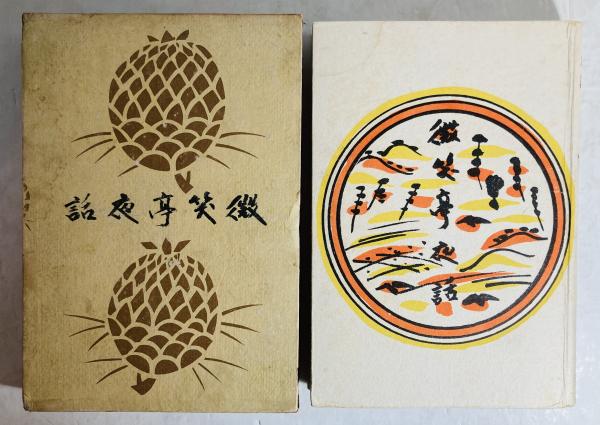 微笑亭夜話
微笑亭夜話